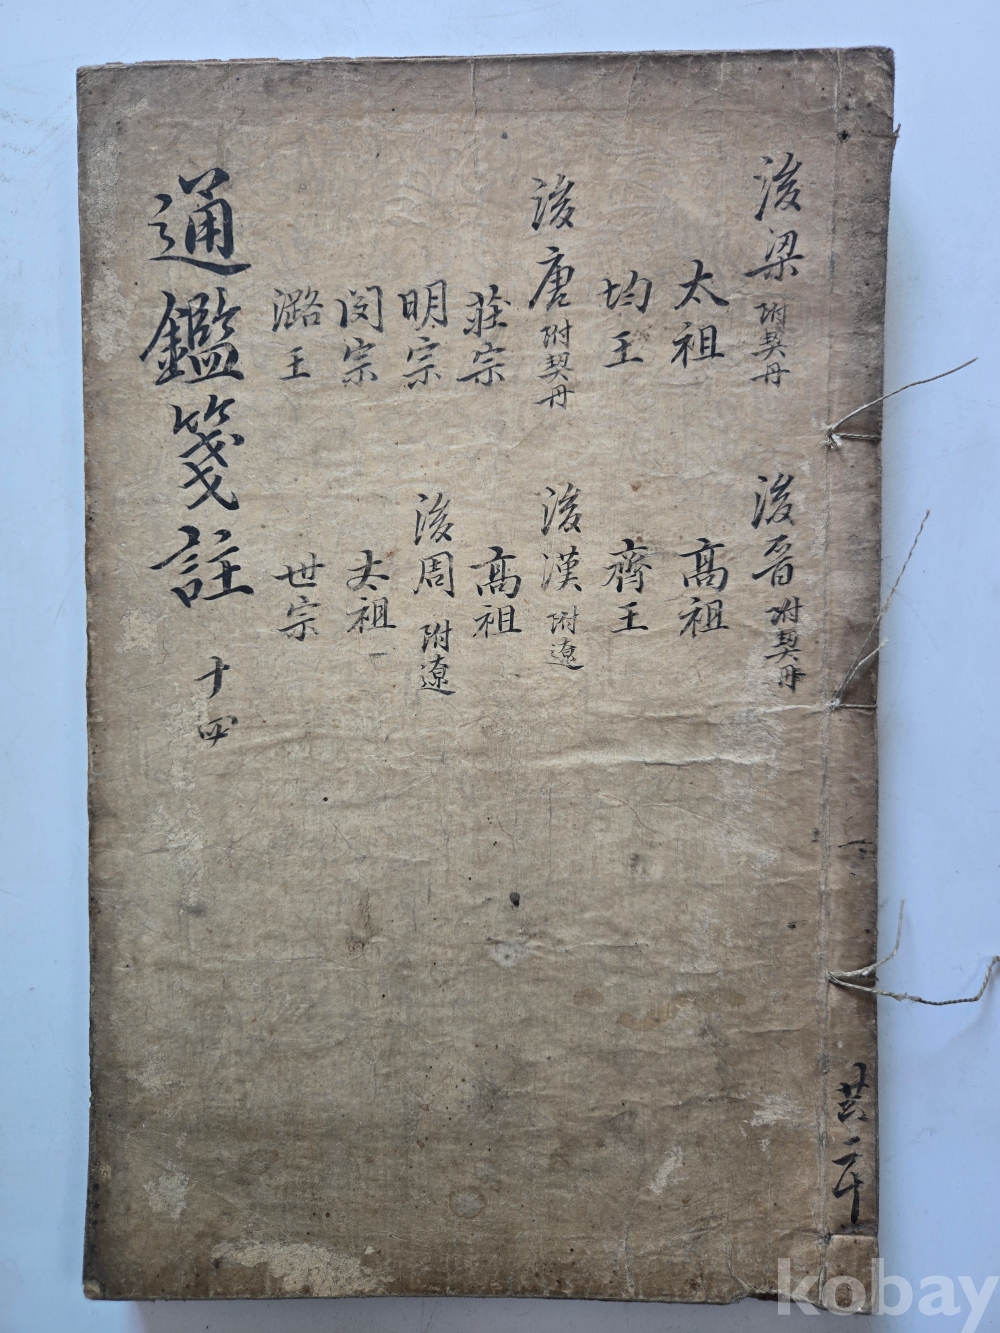 後梁 附契丹
太祖
均王
後唐 附契丹
莊宗
明宗
閔宗
潞王
後晉 附契丹
高祖
齊王
後漢 附遼
高祖
後周 附遼
太祖
世宗
通鑑箋註 十四
共二十
kobay